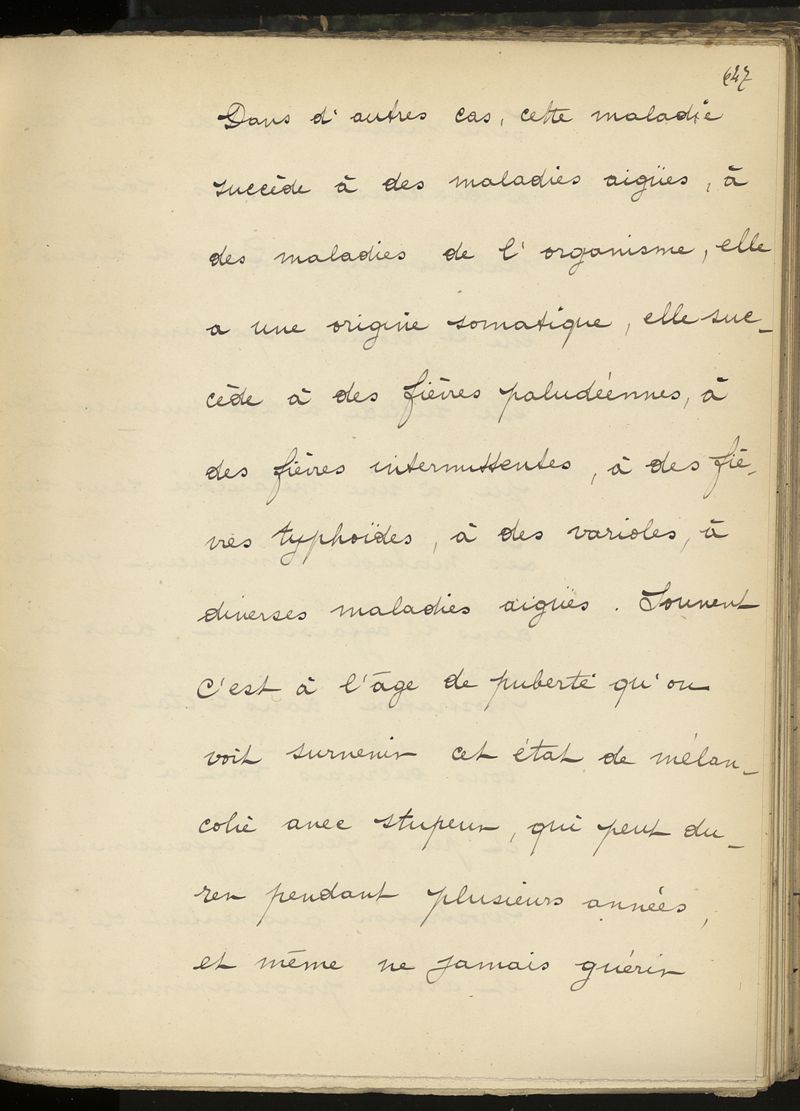 647
Dans d'autres cas, cette maladie
succède à des maladies aigües, à
des maladies de l'organisme, elle
a une origine somatique, elle suc-
cède à des fièvres paludéennes, à
des fièvres intermittentes, à des fiè-
vres typhoïdes, à des varioles, à
diverses maladies aigües. Souvent
c'est à l'âge de puberté qu'on
voit survenir cet état de mélan-
colie avec stupeur, qui peut du-
rer pendant plusieurs années,
et même ne jamais guérir